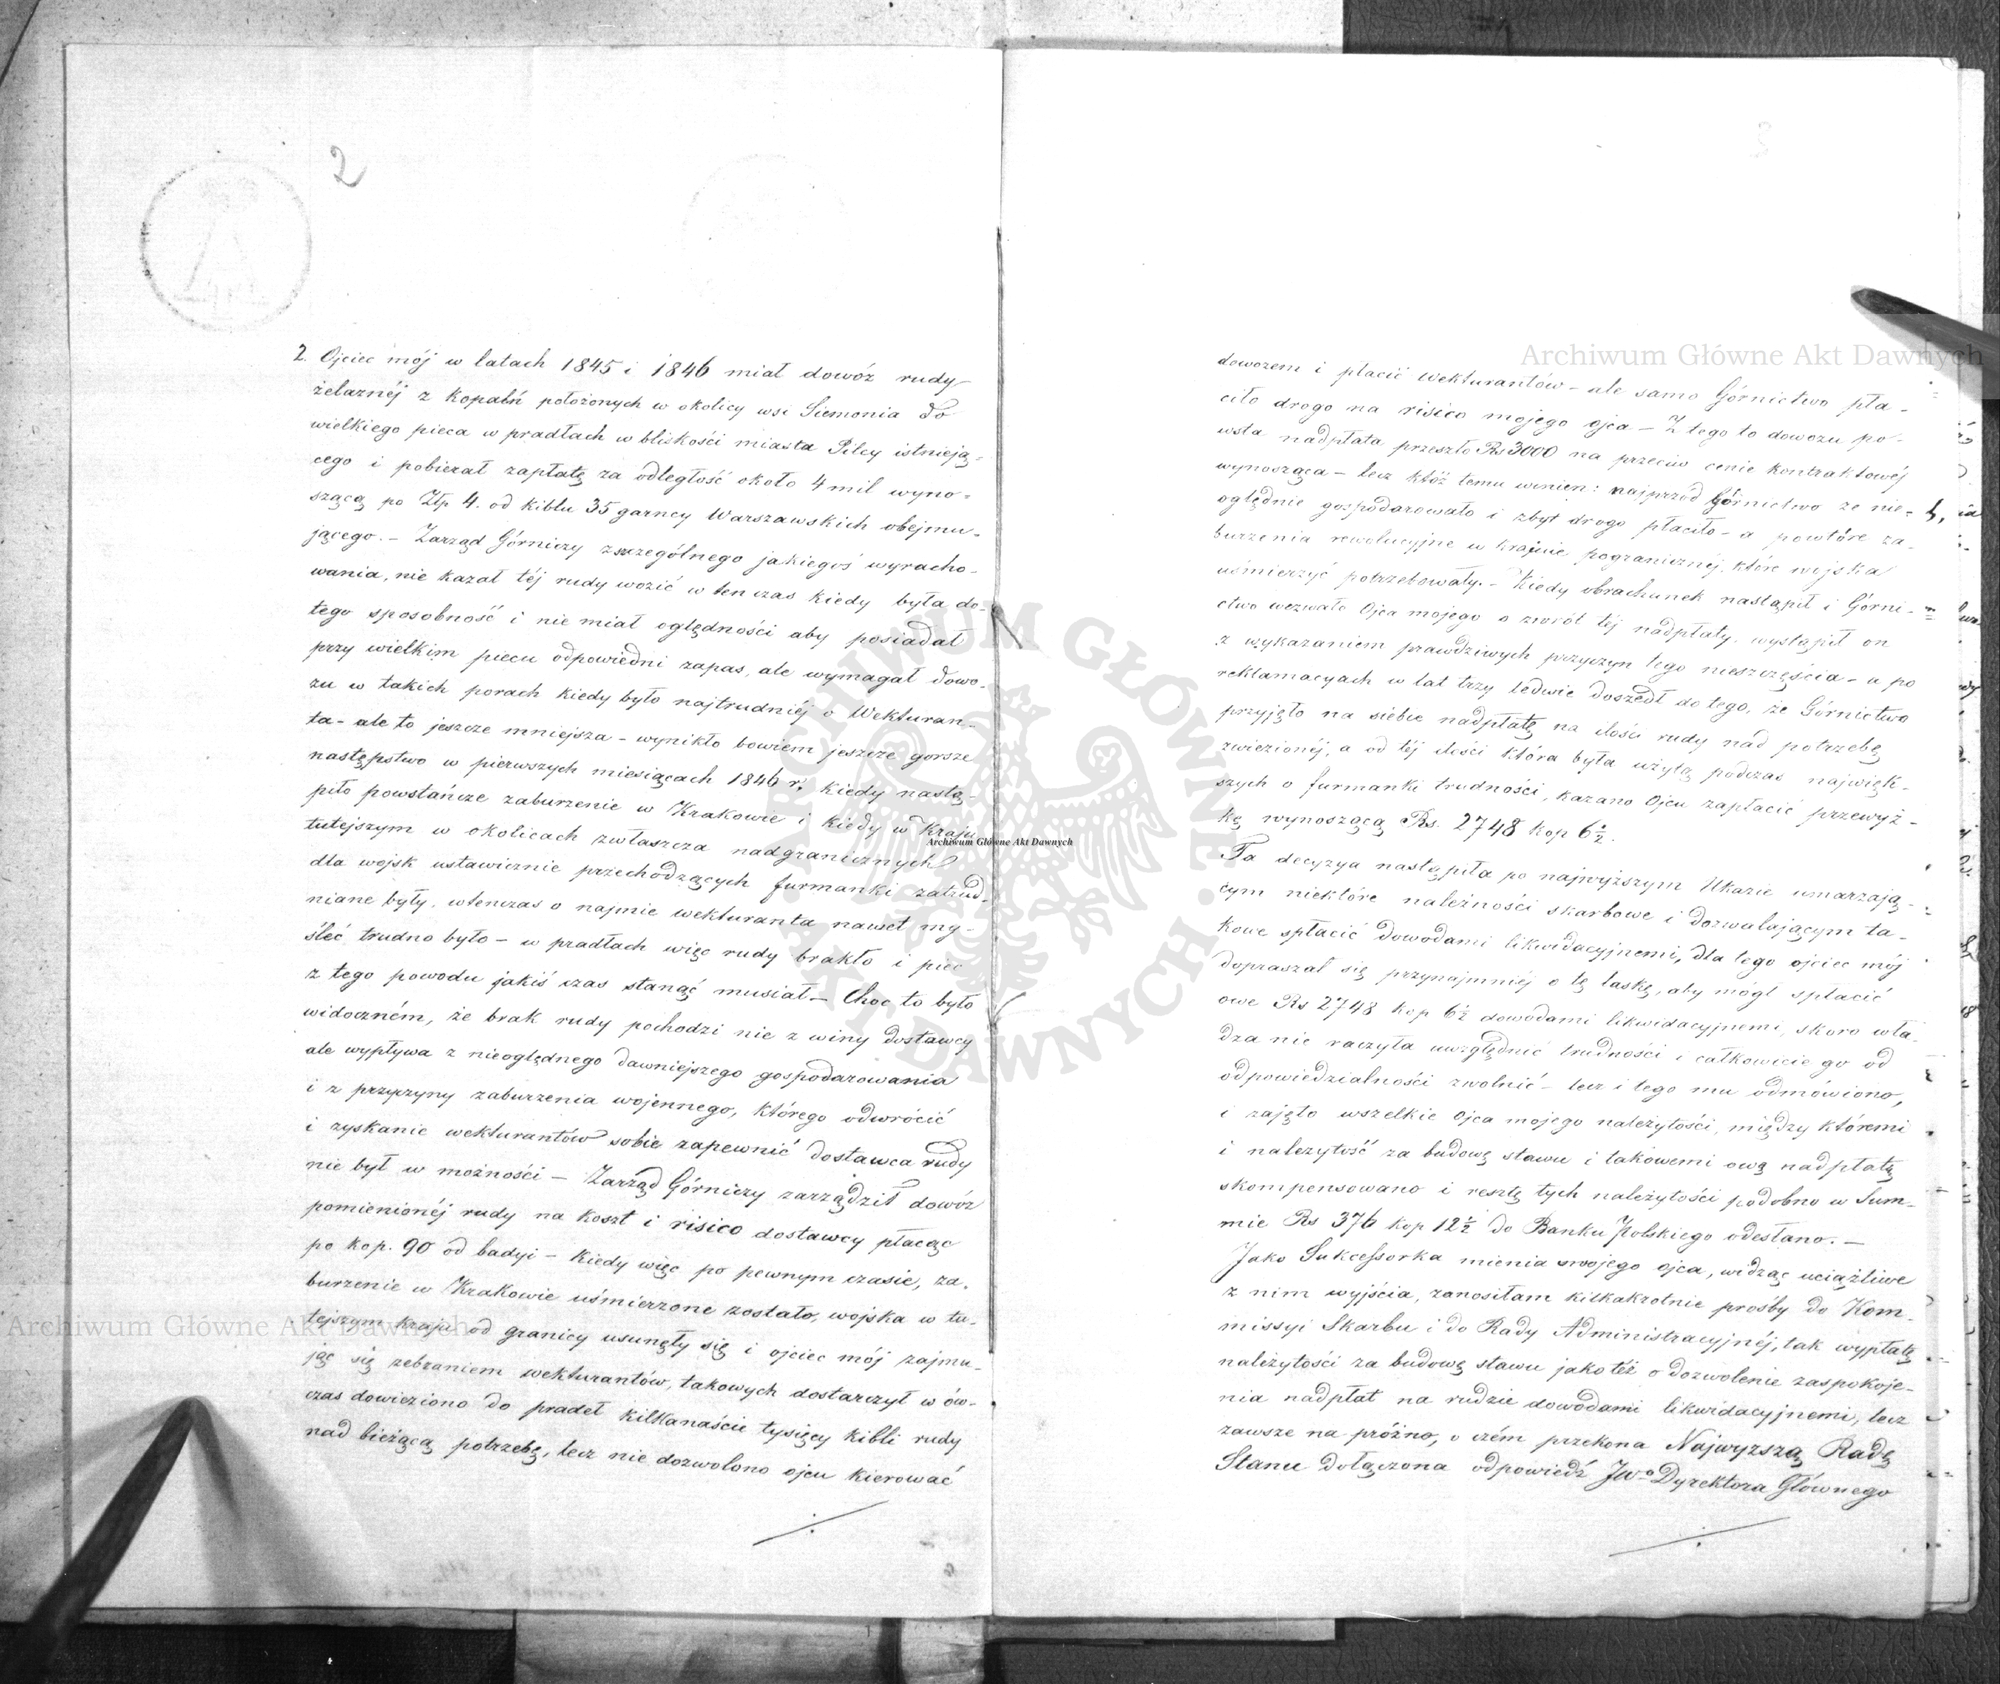 2
2. Ojciec mój w latach 1845 i 1846 miał dowóz rudy
żelaznéj z kopalń położonych w okolicy wsi Siemonia do
wielkiego pieca w pradłach w bliskości miasta Pilcy istnieją-
cego i pobierał zapłatę za odległość około 4 mil wyno-
szącą po Złp 4. od kiblu 35 garncy Warszawskich obejmu-
jącego. – Zarząd Górniczy szczególnego jakiegoś wyracho-
wania, nie kazał téj rudy wozić w ten czas kiedy była do
tego sposobność i nie miał oględności aby posiadał
przy wielkim piecu odpowiedni zapas, ale wymagał dowo-
zu w takich porach kiedy było najtrudniéj o Wekturan-
ta – ale to jeszcze mniejsza – wynikło bowiem jeszcze gorsze
następstwo w pierwszych miesiącach 1846 r. kiedy nastą-
piło powstańcze zaburzenie w Krakowie i kiedy w Kraju
tutejszym w okolicach zwłaszcza nadgranicznych
dla wojsk ustawicznie przechodzących furmanki zatrud-
niane były, wtenczas o najmie wekturanta nawet my-
śleć trudno było – w pradłach więc rudy brakło i piec
z tego powodu jakiś czas stanąć musiał – Choc to było
widoczném, że brak rudy pochodzi nie z winy dostawcy
ale wypływa z nieoględnego dawniejszego gospodarowania
i z przyczyny zaburzenia wojennego, którego odwrócić
i zyskanie wekturantów sobie zapewnić dostawca rudy
nie był w możności – Zarząd Górniczy zarządził dowóz
pomienionéj rudy na koszt i risico dostawcy płacąc
po kop. 90 od badyi – Kiedy więc po pewnym czasie, za-
burzenie w Krakowie uśmierzone zostało, wojska w tu-
tejszym kraju od granicy usunęły się i ojciec mój zajmu-
jąc się zebraniem wekturantów, takowych dostarczył w ów-
czas dowieziono do pradeł kilkanaście tysięcy kibli rudy
nad bieżącą potrzebę, lecz nie dozwolono ojcu kierować
dowozem i płacić wekturantów – ale samo Górnictwo pła-
ciło drogo na risico mojego ojca – Z tego to dowozu po-
wsta nadpłata przeszło Rs 3000 na przeciw cenie kontraktowéj
wynosząca – lecz któż temu winien: najprzód Górnictwo że nie-
oględnie gospodarowało i zbyt drogo płaciło – a powtóre za-
burzenia rewolucyjne w krainie pogranicznéj, które wojska
uśmierzyć potrzebowały. – Kiedy obrachunek nastąpił i Górni-
ctwo wezwało Ojca mojego o zwrót téj nadpłaty, wystąpił on
z wykazaniem prawdziwych przyczyn tego nieszczęścia – a po
reklamacyach w lat trzy ledwie doszedł do tego, że Górnictwo
przyjęło na siebie nadpłatę na ilości rudy nad potrzebę
zwiezionéj, a od téj ilości która była użytą podczas najwięk-
szych o furmanki trudności, kazano Ojcu zapłacić przewyż-
kę wynoszącą Rs. 2748 kop 6½.
Ta decyzya nastąpiła po najwyższym Ukazie umarzają-
cym niektóre należności skarbowe i dozwalającym ta-
kowe spłacić dowodami likwidacyjnemi, dla tego ojciec mój
dopraszał się przynajmniéj o tę łaskę, aby mógł spłacić
owe Rs 2748 kop 6½ dowodami likwidacyjnemi, skoro wła-
dza nie raczyła uwzględnić trudności i całkowicie go od
odpowiedzialności zwolnić – lecz i tego mu odmówiono,
i zajęto wszelkie ojca mojego należytości, między któremi
i należytość za budowę stawu i takowemi ową nadpłatę
skompensowano i resztę tych należytości podobno w Sum-
mie Rs 376 kop 12½ do Banku Polskiego odesłano. –
Jako Sukcessorka mienia swojego ojca, widząc uciążliwe
z nim wyjścia, zanosiłam kilkakrotnie prośby do Kom-
missyi Skarbu i do Rady Administracyjnéj, tak wypłatę
należytości za budowę stawu jako téż o dozwolenie zaspokoje-
nia nadpłat na rudzie dowodami likwidacyjnemi, lecz
zawsze na próżno, o czém przekona Najwyższą Radę
Stanu dołączona odpowiedź JWo Dyrektora Głównego
Archiwum Główne Akt Dawnych
Archiwum Główne Akt Dawnych
Archiwum Główne Akt Dawnych
ARCHIWUM GŁÓWNE AKT DAWNYCH